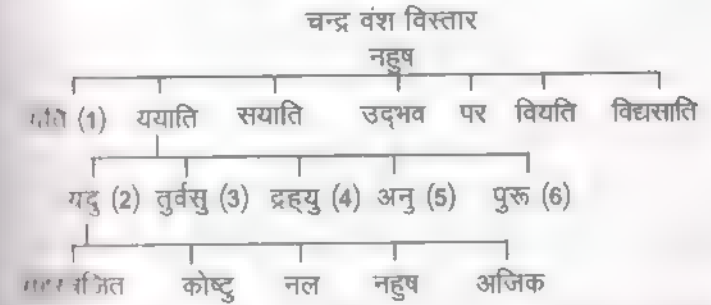 चन्द्र वंश विस्तार
नहुष
(1) ययाति सयाति उद्भव पर वियति विद्यसाति
यदु (2) तुर्वसु (3) द्रह्यु (4) अनु (5) पुरू (6)
कोष्टु नल नहुष अजिक